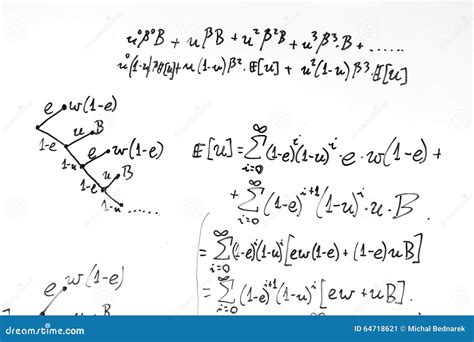 u⁰β⁰B + uβB + u²β²B + u³β³·B + ......
u⁰(1-u)β𝔼[u] + u(1-u)β²·𝔼[u] + u²(1-u)β³·𝔼[u]
e w(1-e)
1-e u B
1-u e w(1-e)
1-e u B
1-u ......
𝔼[u] = ∑_{i=0}^{∞} (1-e)^i (1-u)^i · e · w(1-e) +
+ ∑_{i=0}^{∞} (1-e)^{i+1} (1-u)^i · u · B
= ∑_{i=0}^{∞} (1-e)^i (1-u)^i [ew(1-e) + (1-e)uB]
= ∑_{i=0}^{∞} (1-e)^{i+1} (1-u)^i [ew + uB].
e w(1-e)
u B
dreamstime.com
ID 64718621 © Michal Bednarek